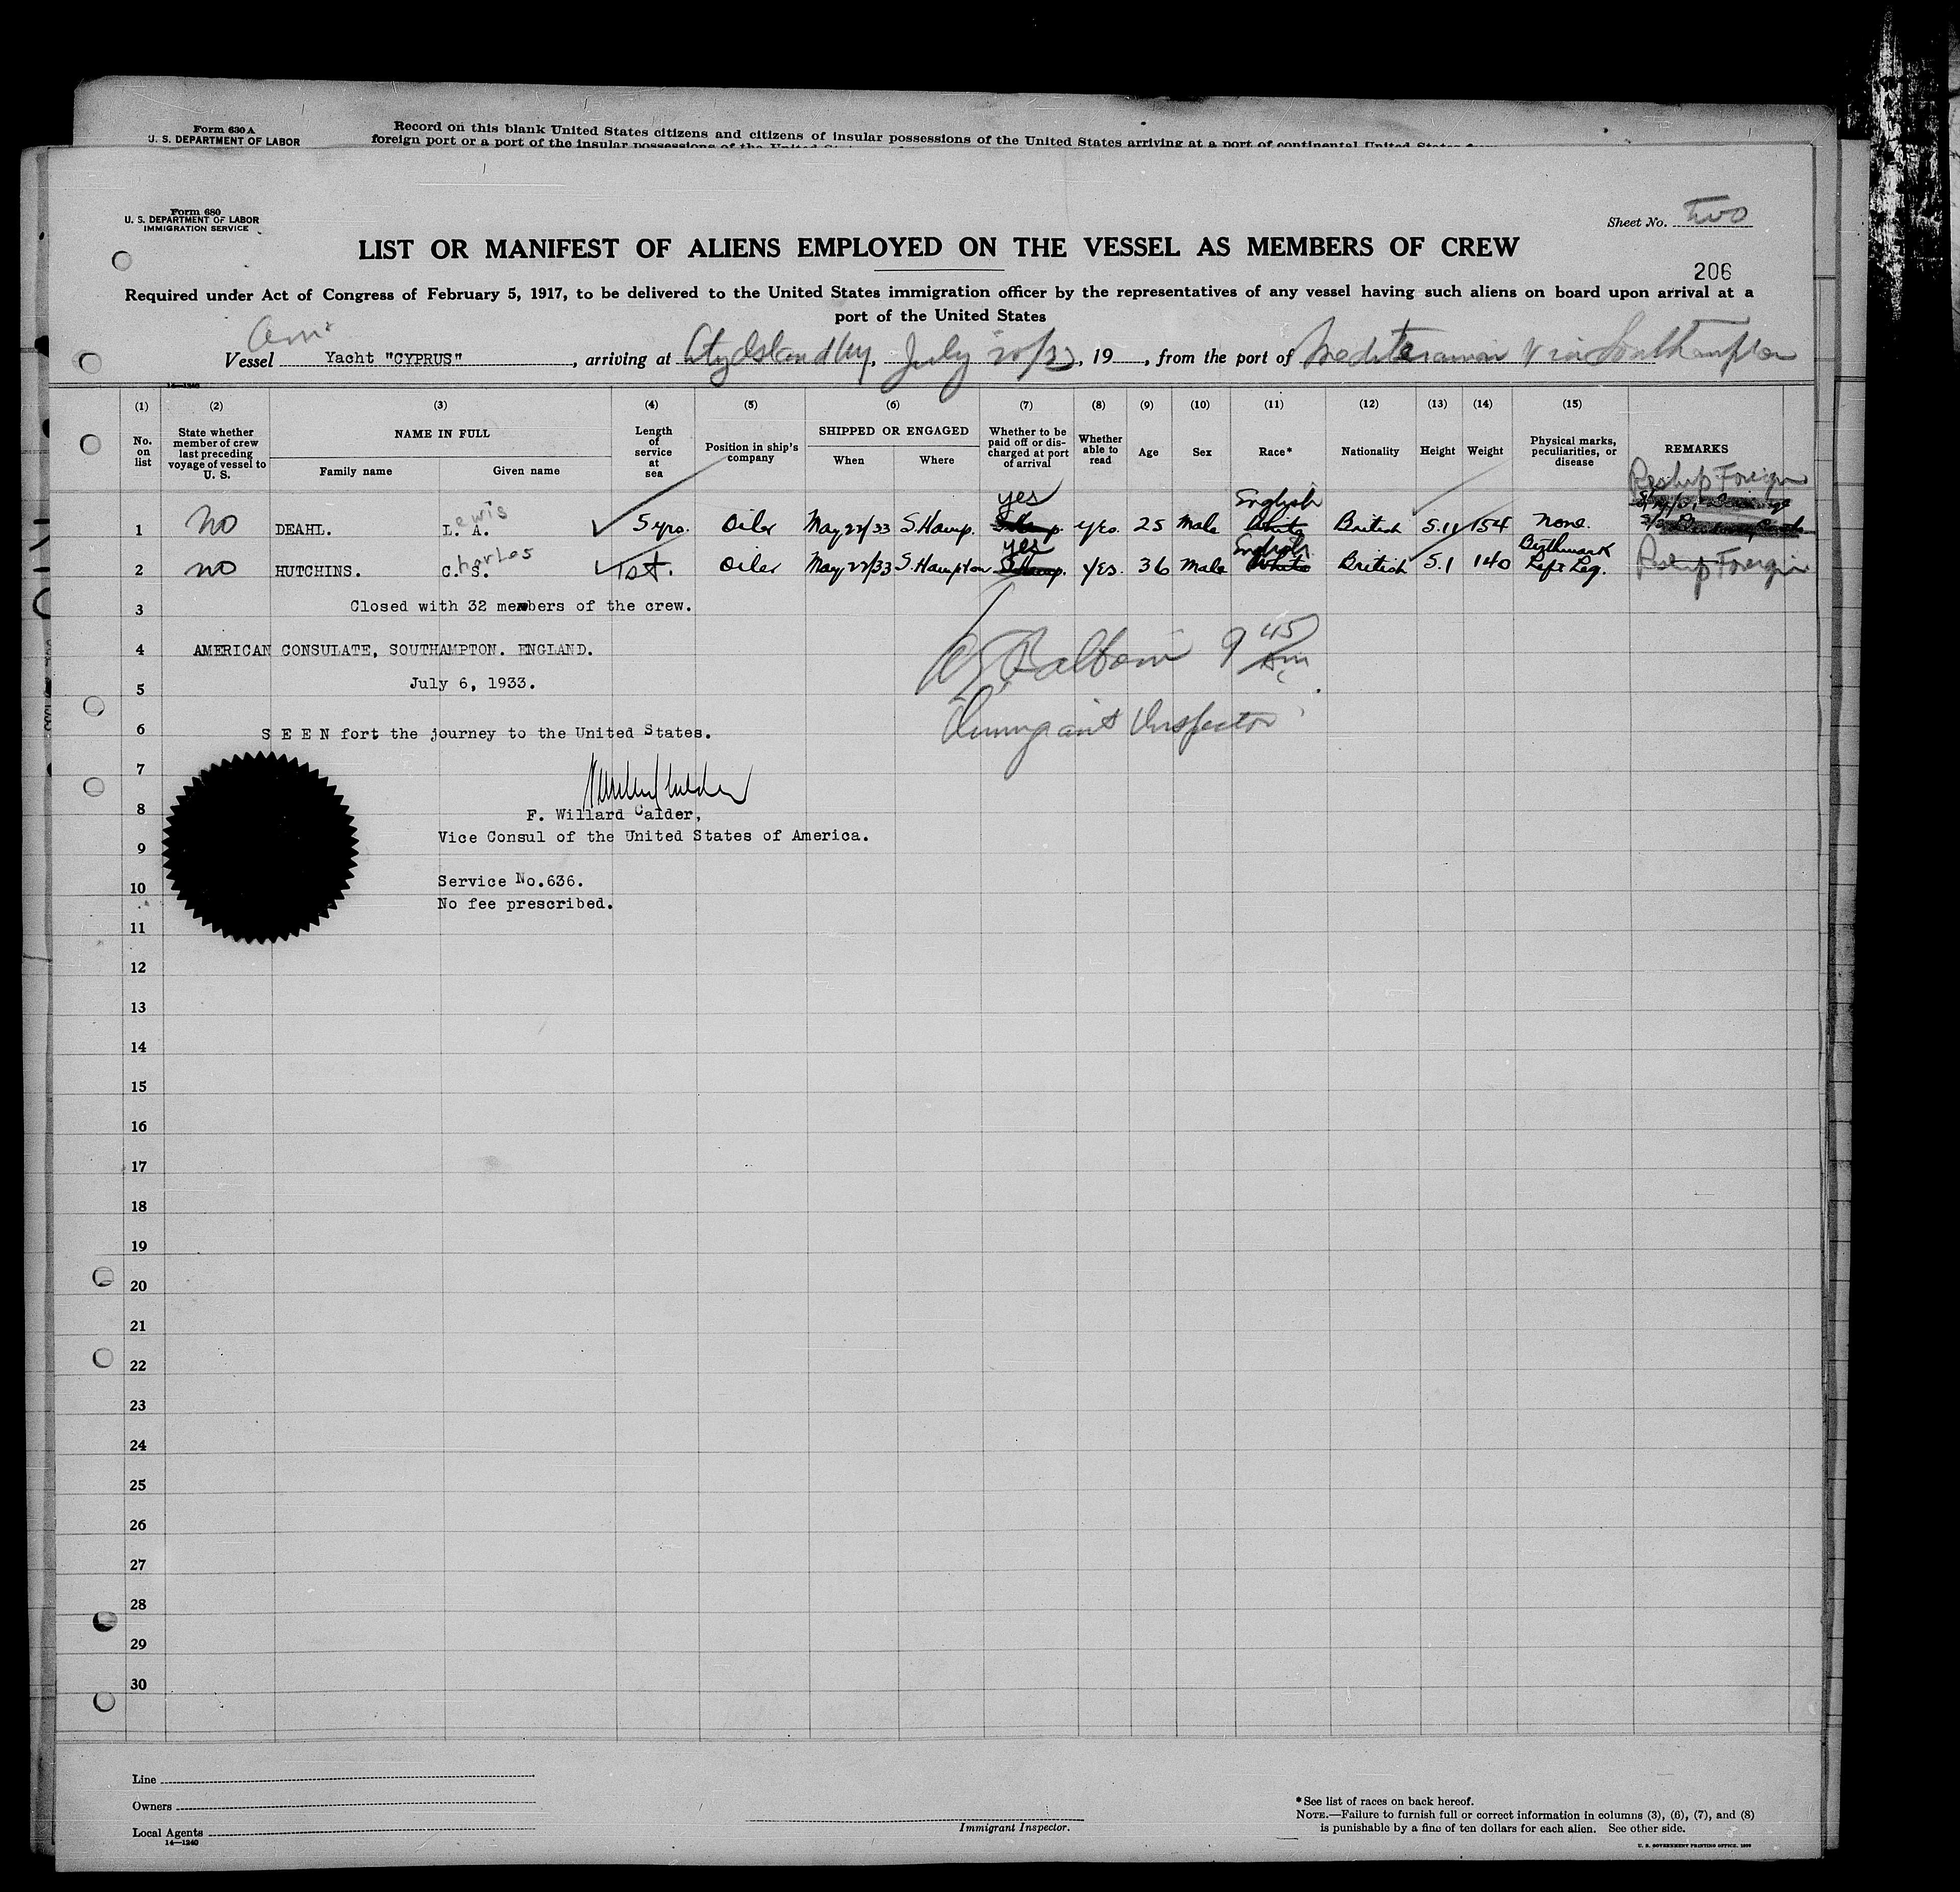 Form 630 A
U. S. DEPARTMENT OF LABOR
Record on this blank United States citizens and citizens of insular possessions of the United States arriving at a port of continental United States
foreign port or a port of the insular possessions of the United
Form 680
U. S. DEPARTMENT OF LABOR
IMMIGRATION SERVICE
Sheet No. Two
LIST OR MANIFEST OF ALIENS EMPLOYED ON THE VESSEL AS MEMBERS OF CREW
206
Required under Act of Congress of February 5, 1917, to be delivered to the United States immigration officer by the representatives of any vessel having such aliens on board upon arrival at a
port of the United States
Am
Vessel Yacht "CYPRUS", arriving at July 20/33, 19, from the port of Mediteranian Via Southampton
14—1240
(1) (2) (3) (4) (5) (6) (7) (8) (9) (10) (11) (12) (13) (14) (15)
No. on list
State whether member of crew last preceding voyage of vessel to U. S.
NAME IN FULL
Family name Given name
Length of service at sea
Position in ship's company
SHIPPED OR ENGAGED
When Where
Whether to be paid off or discharged at port of arrival
Whether able to read
Age Sex Race* Nationality Height Weight
Physical marks, peculiarities, or disease
REMARKS
yes English Reship Foreign
1 No DEAHL. L.ewis A. 5 yrs. Oiler May 22/33 S.Hamp. yes. 25 Male White British 5.11 154 None.
yes English Birthmark
2 no HUTCHINS. C.harles S. 1st. Oiler May 22/33 S.Hampton yes. 36 Male White British 5.1 140 Left Leg. Reship Foreign
3 Closed with 32 members of the crew.
4 AMERICAN CONSULATE, SOUTHAMPTON. ENGLAND.
9 45 Am
5 July 6, 1933.
6 S E E N fort the journey to the United States.
Immigrant Inspector
7
8 F. Willard Calder,
Vice Consul of the United States of America.
9
10 Service No.636.
No fee prescribed.
11
12
13
14
15
16
17
18
19
20
21
22
23
24
25
26
27
28
29
30
Line
Owners
Local Agents
14—1240
Immigrant Inspector.
*See list of races on back hereof.
NOTE.—Failure to furnish full or correct information in columns (3), (6), (7), and (8)
is punishable by a fine of ten dollars for each alien. See other side.
U. S. GOVERNMENT PRINTING OFFICE